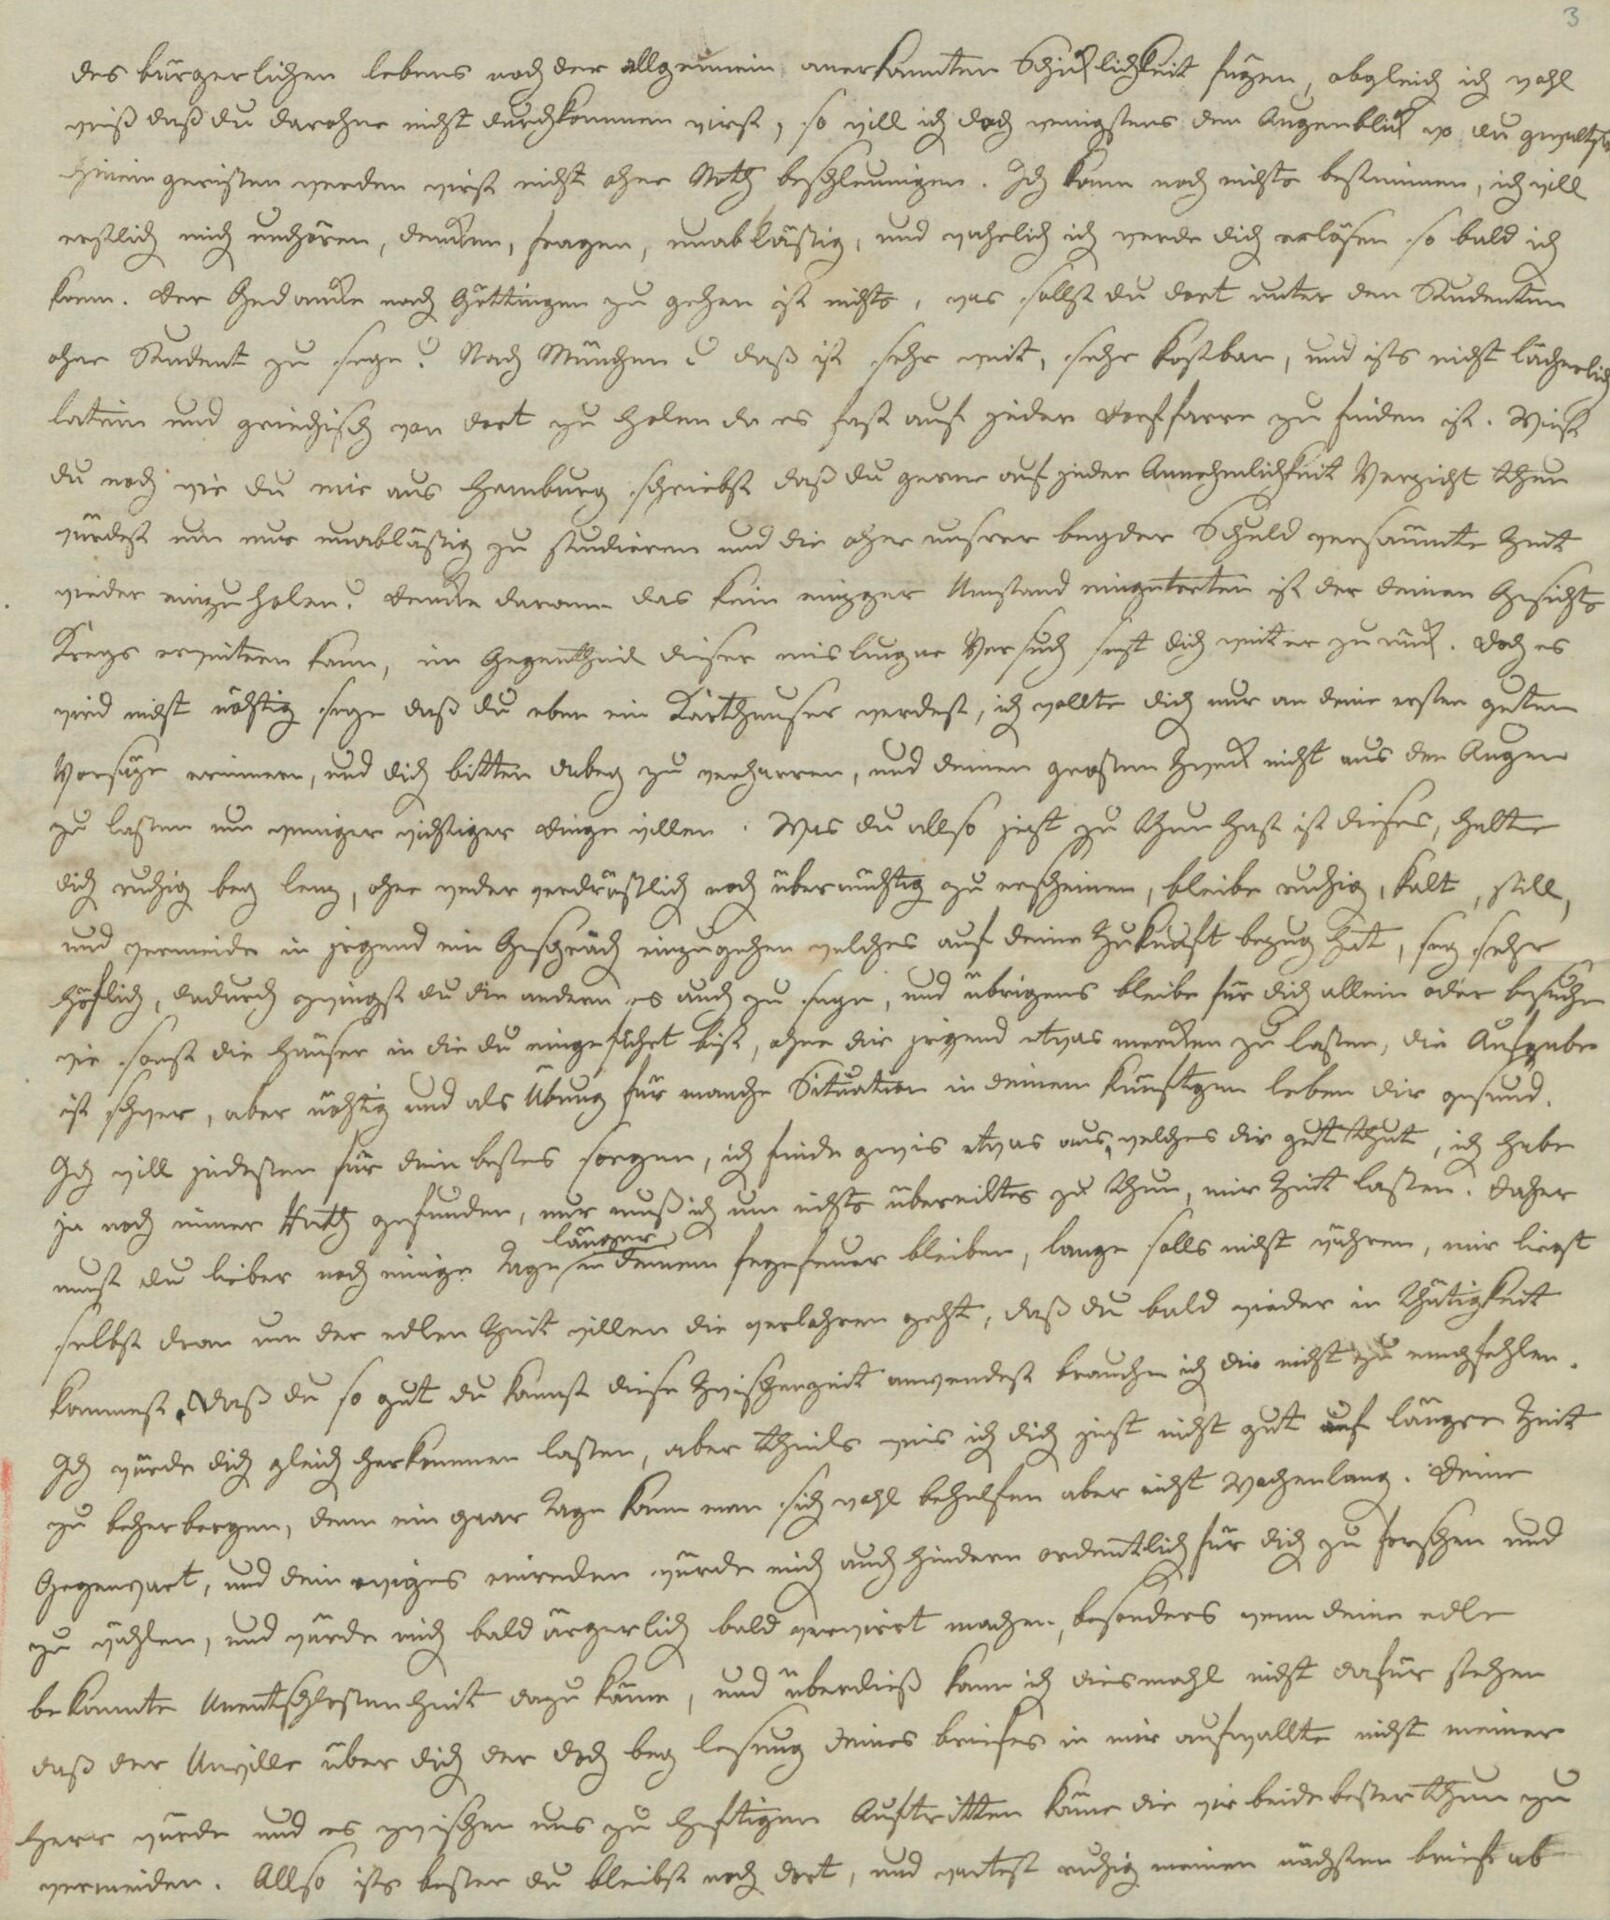 3
des bürgerlichen lebens noch der allgemein anerkannten Schicklichkeit fügen, obgleich ich wohl
weiß daß du darohne nicht durchkommen wirst, so will ich doch wenigstens den Augenblick wo du gewaltsam
hinein gerissen werden wirst nicht ohne Noth beschleunigen. Ich kann noch nichts bestimmen, ich will
erstlich mich umhören, dencken, fragen, unabläßig, und wahrlich ich werde dich erlösen so bald ich
kann. der Gedancke nach Göttingen zu gehen ist nichts, was sollst du dort unter den Studenten
ohne Student zu seyn? Nach München? daß ist sehr weit, sehr kostbar, und ists nicht lächerlich
latein und griechisch von dort zu holen da es fast auf jeder dorfpfarre zu finden ist. Weist
du noch wie du mir aus Hamburg schriebst daß du gerne auf jeder Annehmlichkeit Verzicht thun
würdest um nur unabläßig zu studieren und die ohne unsrer beyder Schuld versäumte Zeit
wieder einzuholen? dencke daran das kein einzger Umstand eingetreten ist der deinen Gesichts
Kreys erweitern kann, im Gegentheil dieser mislungne Versuch sezt dich weiter zurück. doch es
wird nicht nöhtig seyn daß du eben ein Karthauser werdest, ich wollte dich nur an deine ersten guten
Vorsäze erinnern, und dich bitten dabey zu verharren, und deinen großen Zweck nicht aus den Augen
zu lassen um weniger wichtiger dinge willen. Was du allso jezt zu thun hast ist dieses, halte
dich ruhig bey lenz, ohne weder verdrüßlich noch übermühtig zu erscheinen, bleibe ruhig, kalt, still,
und vermeide in jrgend ein Gespräch einzugehen welches auf deine Zukunft bezug hat, sey sehr
höflich, dadurch zwingst du die andern es auch zu seyn, und übrigens bleibe für dich allein oder besuche
wie sonst die Häuser in die du eingeführt bist, ohne dir jrgend etwas mercken zu lassen, die Aufgabe
ist schwer, aber nöhtig und als Übung für manche Situation in deinem künftgen leben dir gesund.
Ich will jndessen für dein bestes sorgen, ich finde gewis etwas aus, welches dir gut thut, ich habe
ja noch immer Rath gefunden, nur muß ich um nichts übereiltes zu thun, mir Zeit lassen. daher
must du lieber noch einige Tage länger in deinem fegefeuer bleiben, lange solls nicht währen, mir liegt
selbst dran um der edlen Zeit willen die verlohren geht, daß du bald wieder in Thätigkeit
kommest. daß du so gut du kannst diese Zwischenzeit anwendest brauche ich dir nicht zu empfehlen.
Ich würde dich gleich herkommen lassen, aber theils weis ich dich jezt nicht gut auf längre Zeit
zu beherbergen, denn ein paar Tage kann man sich wohl behelfen aber nicht Wochenlang. deine
Gegenwart, und dein ewiges einreden würde mich auch hindern ordentlich für dich zu forschen und
zu wählen, und würde mich bald ärgerlich bald verwirrt machen, besonders wenn deine edle
bekannte Unentschlossenheit dazu käme, und überdieß kann ich diesmahl nicht dafür stehen
daß der Unwille über dich der doch bey lesung deines briefes in mir aufwallte nicht meiner
Herr würde und es zwischen uns zu heftigen Auftritten käme die wir beide besser thun zu
vermeiden. Allso ists besser du bleibst noch dort, und wartest ruhig meinen nächsten brief ab